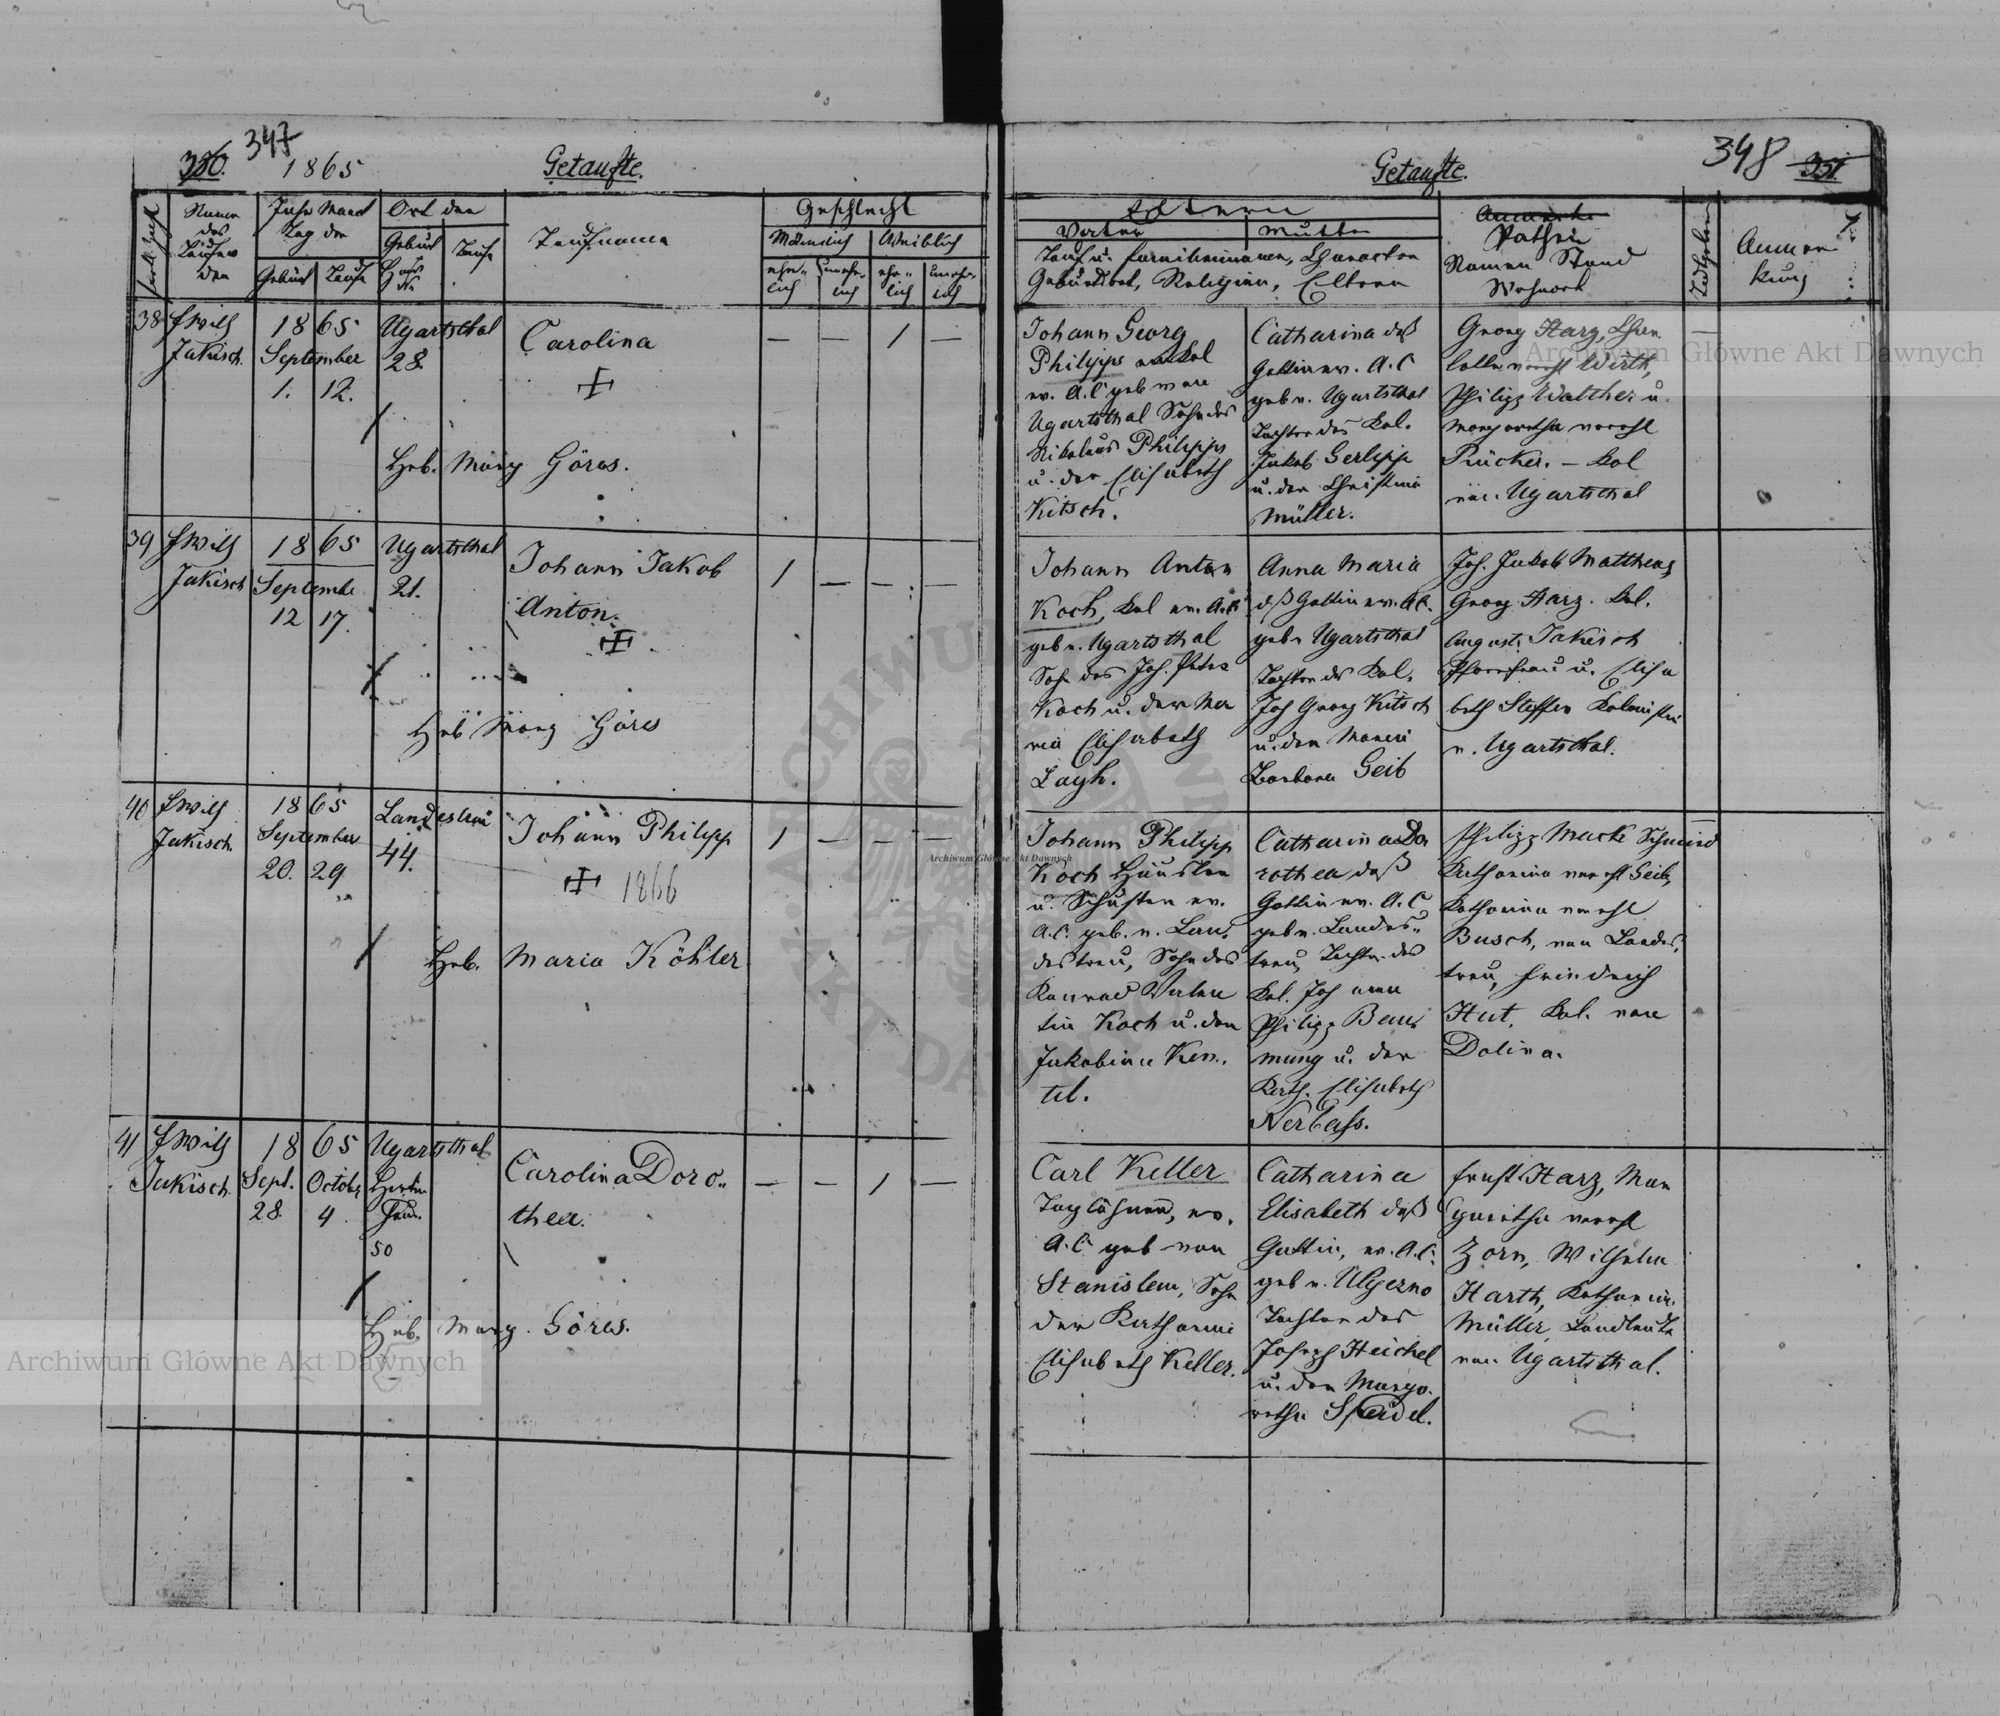 350. 347
1865
Getaufte.
Name des Täufenden
Jahr Monat Tag der
Geburt
Taufe
Ort der
Geburt Haus Nr
Taufe
Taufname
Geschlecht
Männlich
Weiblich
ehelich
unehelich
ehelich
unehelich
38
Jakisch.
1865
September
1. 12.
Ugartsthal
28.
Carolina
— — 1 —
Heb. Marg Göres.
39
Jakisch
1865
Septembe
12 17.
Ugartsthal
21.
Johann Jakob
Anton.
1 — — —
Heb Marg Göres
40
Jakisch.
1865
September
20. 29
Landestreu
44.
Johann Philipp
1866
1 — — —
Heb. Maria Köhler
41
Jakisch.
1865
Sept. October
28. 4.
Ugartsthal
50
Carolina Doro„
thea.
— — 1 —
Heb. Marg. Göres.
Getaufte.
348 351.
Eltern
Vater
Mutter
Tauf u. Familiennamen, Character
Geburtsort, Religion, Eltern
Pathen
Namen Stand
Wohnort
Anmer
kung
Johann Georg
Philipps Kol
ev. A.C geb von
Ugartsthal Sohn des
Nikolaus Philipps
u. der Elisabeth
Kitsch.
Catharina deß
Gattin ev. A.C
geb v. Ugartsthal
Tochter des Kol.
Jakob Gerlipp
u. der Christina
Müller.
Georg Harz,
verehl Wirth,
Philipp Walther u.
Margaretha verehl
Rücker. – Kol
von Ugartsthal
Johann Anton
Koch, Kol ev. A.C
geb v. Ugartsthal
Sohn des Joh. Peter
Koch u. der Ma
ria Elisabeth
Layh.
Anna Maria
deß Gattin ev. A.C.
geb v Ugartsthal
Tochter des Kol.
Joh Georg Kitsch
u. der Maria
Barbara Geib
Joh. Jakob Mattheas,
Georg Harz. Kol.
August. Jakisch
Pfarrfrau u. Elisa
beth Steffen Kolonisten
v. Ugartsthal.
Johann Philipp
Koch Häusler
u. Schuster ev.
A.C. geb. v. Lan„
destreu, Sohn des
Konrad Valen
tin Koch u. der
Jakobina Ken„
tel.
Catharina Do
rothea deß
Gattin ev. A.C
geb v. Landes„
treu, Tochter des
Kol. Johann
Philipp Bau
mung u. der
Kath. Elisabeth
Nerbass.
Philipp Mack Schmied
Katharina verehl Geib,
Katharina verehl
Busch, von Landes„
treu, Friedrich
Hut, Kol. von
Dolina.
Carl Keller
Taglöhner, ev.
A.C geb von
Stanislau, Sohn
der Katharina
Elisabeth Keller.
Catharina
Elisabeth deß
Gattin, ev. A.C.
geb v. Ugerzno
Tochter des
Joseph Heichel
u. der Marga„
retha Seidel.
Ernst Harz, Mar
garetha verehl
Zorn, Wilhelm
Harth, Katharina
Müller, Landleute
von Ugartsthal.
Archiwum Główne Akt Dawnych
Archiwum Główne Akt Dawnych
Archiwum Główne Akt Dawnych